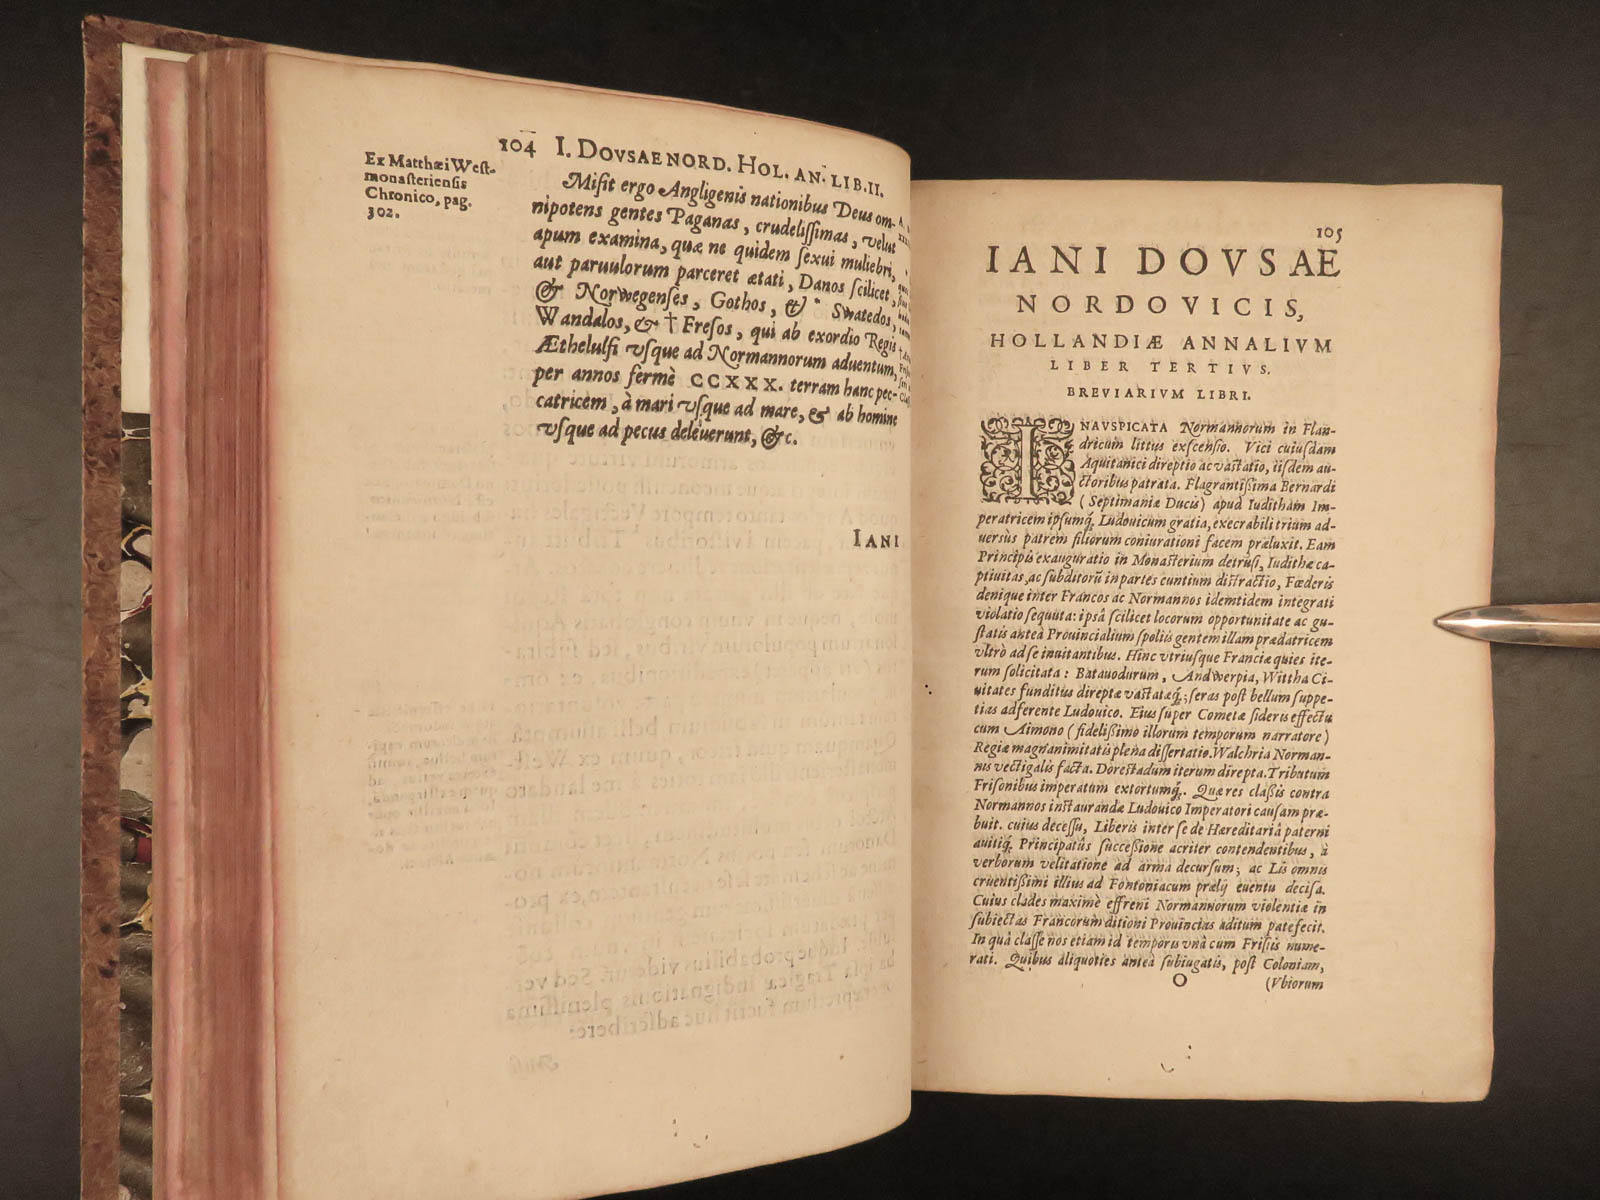 104 I. DOVSAE NORD. HOL. AN. LIB. II.
Ex Matthæi West-
monasteriensis
Chronico, pag.
302.
Misit ergo Angligenis nationibus Deus om-
nipotens gentes Paganas, crudelissimas, velut
apum examina, quæ ne quidem sexui muliebri,
aut paruulorum parceret ætati, Danos scilicet,
& Norwegenses, Gothos, & * Swatedos,
Wandalos, & † Fresos, qui ab exordio Regis
Æthelulfi vsque ad Normannorum aduentum,
per annos fermè CCXXX. terram hanc pec-
catricem, à mari vsque ad mare, & ab homine
vsque ad pecus deleuerunt, &c.
IANI
105
IANI DOVSAE
NORDOVICIS,
HOLLANDIÆ ANNALIVM
LIBER TERTIVS.
BREVIARIVM LIBRI.
INAVSPICATA Normannorum in Flan-
dricum littus exscensio. Vici cuiusdam
Aquitanici direptio ac vastatio, iisdem au-
ctoribus patrata. Flagrantißima Bernardi
(Septimaniæ Ducis) apud Iuditham Im-
peratricem ipsumq́, Ludouicum gratia, execrabili trium ad-
uersùs patrem filiorum coniurationi facem præluxit. Eam
Principis exauguratio in Monasterium detrusi, Iudithæ ca-
ptiuitas, ac subditorũ in partes euntium distractio, Fœderis
denique inter Francos ac Normannos identidem integrati
violatio sequuta: ipsâ scilicet locorum opportunitate ac gu-
statis anteà Prouincialium spoliis gentem illam prædatricem
vltrò ad se inuitantibus. Hinc vtriusque Franciæ quies ite-
rum solicitata: Batauodurum, Andwerpia, Wittha Ci-
uitates funditus direptæ vastatæq́; seras post bellum suppe-
tias adferente Ludouico. Eius super Cometæ sideris effectu
cum Aimono (fidelißimo illorum temporum narratore)
Regiæ magnanimitatis plena dissertatio. Walchria Norman-
nis vectigalis facta. Dorestadum iterum direpta. Tributum
Frisonibus imperatum extortumq́. Quæres claßis contra
Normannos instaurandæ Ludouico Imperatori causam præ-
buit. cuius decessu, Liberis inter se de Hæreditariâ paterni
auitiq́, Principatûs succeßione acriter contendentibus, à
verborum velitatione ad arma decursum; ac Lis omnis
cruentißimi illius ad Fontoniacum prælij euentu decisa.
Cuius clades maximè effreni Normannorum violentiæ in
subiectas Francorum ditioni Prouincias aditum patefecit.
In quâ classe nos etiam id temporis vnà cum Frisiis nume-
rati. Quibus aliquoties anteà subiugatis, post Coloniam,
O
(Vbiorum